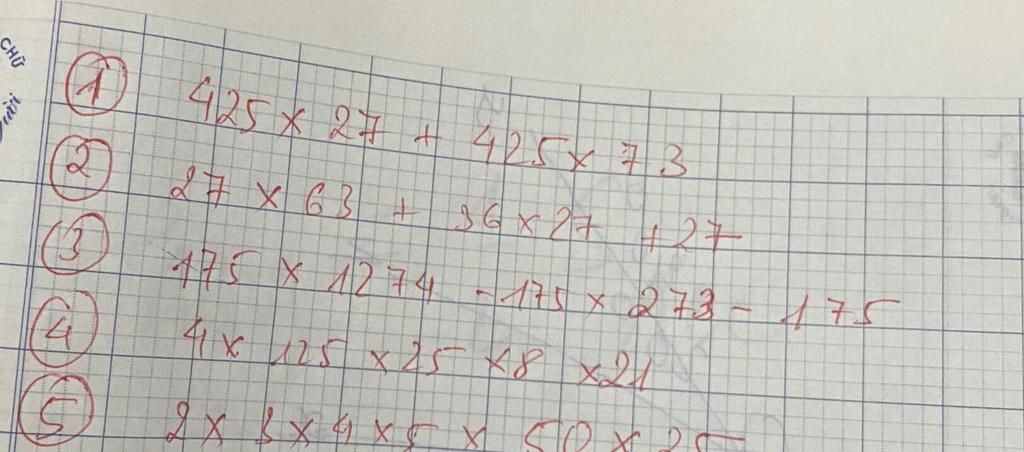 CHỮ
① 425 × 27 + 425 × 73
② 27 × 63 + 36 × 27 + 27
③ 175 × 1274 - 175 × 273 - 175
④ 4 × 125 × 25 × 8 × 21
⑤ 2 × 3 × 4 × 5 × 50 × 25